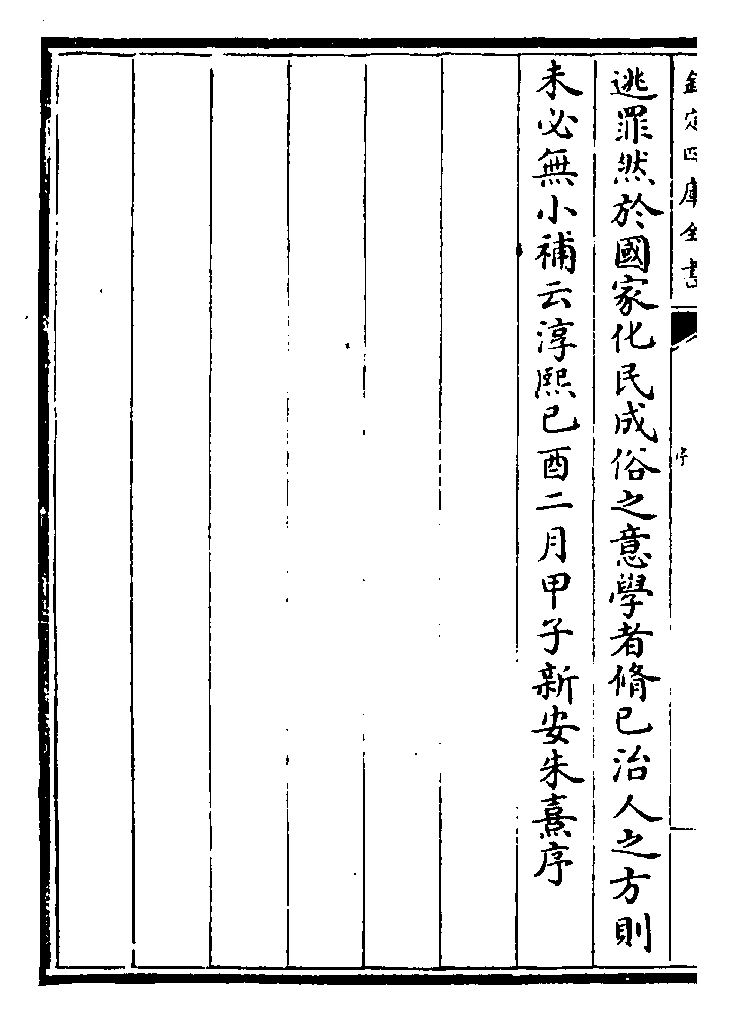 欽定四庫全書
序
逃罪然於國家化民成俗之意學者脩已治人之方則
未必無小補云淳熙已酉二月甲子新安朱熹序